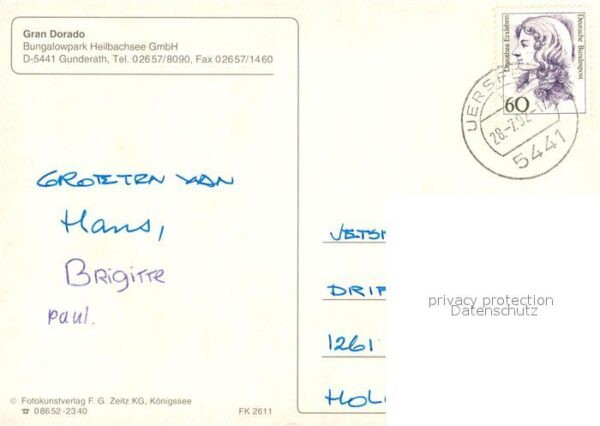 Gran Dorado
Bungalowpark Heilbachsee GmbH
D-5441 Gunderath, Tel. 02657/8090, Fax 02657/1460
Dorothea Erxleben
Deutsche Bundespost
60
28.-7.92
5441
GROETEN VAN
Hans,
BRIGITTE
paul.
1261
privacy protection
Datenschutz
© Fotokunstverlag F. G. Zeitz KG, Königssee
☎ 08652-2340
FK 2611